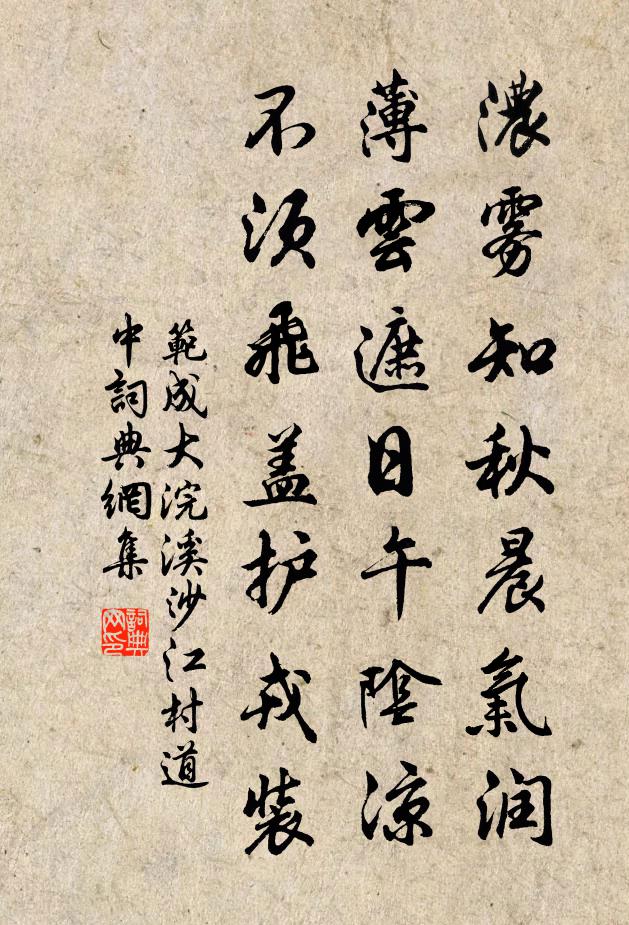 濃雾知秋晨氣润
薄雲遮日午陰涼
不须飛盖护戎裝
範成大浣溪沙江村道
中詞典網集
詞典网印